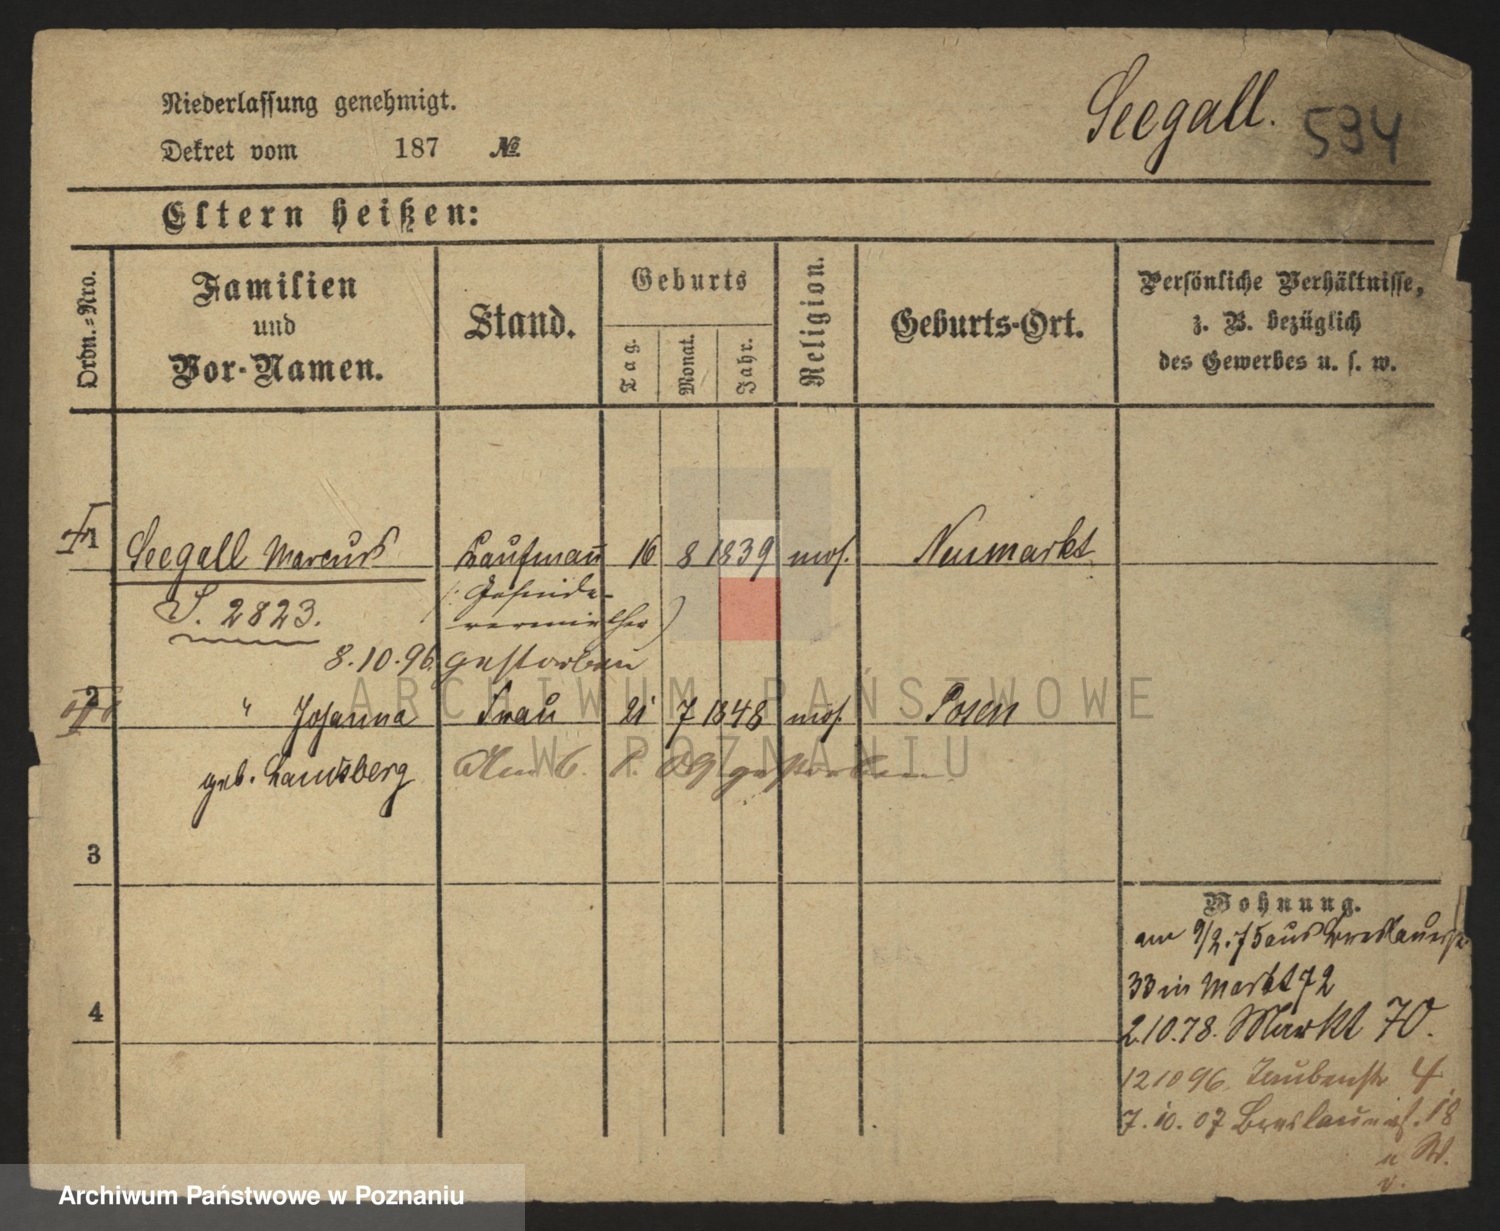 Niederlassung genehmigt.
Dekret vom 187 №
Seegall.
534
Eltern heißen:
Ordn.-Nro.
Familien und Vor-Namen.
Stand.
Geburts
Tag.
Monat.
Jahr.
Religion.
Geburts-Ort.
Persönliche Verhältnisse,
z. B. bezüglich
des Gewerbes u. s. w.
1 Seegall Marcus Kaufmann 16 8 1839 mos. Neumarkt
(: Gesinde-
vermiether)
S. 2823.
8.10.96. gestorben
2 " Johanna Frau 21 7 1848 mos. Posen
geb. Landsberg Am 6. 1. 09 gestorben
3
4
Wohnung.
am 9/2.75 aus Breslauerstr
33 in Markt 72
2.10.78. Markt 70.
12 10 96. Taubenstr 4
7.10.07 Breslauerst. 18
ARCHIWUM PAŃSTWOWE
W POZNANIU
Archiwum Państwowe w Poznaniu